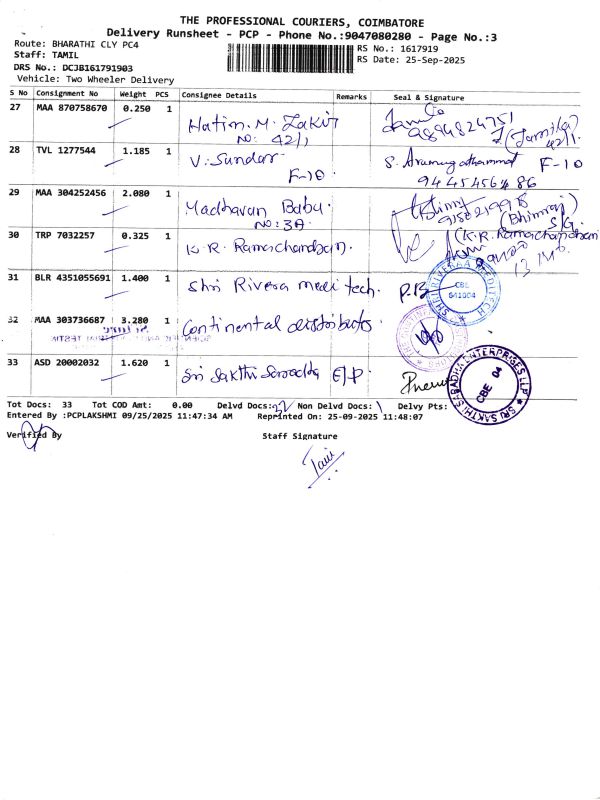 THE PROFESSIONAL COURIERS, COIMBATORE
Delivery Runsheet - PCP - Phone No.:9047080280 - Page No.:3
Route: BHARATHI CLY PC4
RS No.: 1617919
Staff: TAMIL
RS Date: 25-Sep-2025
DRS No.: DC3B161791903
Vehicle: Two Wheeler Delivery
S No Consignment No Weight PCS Consignee Details Remarks Seal & Signature
27 MAA 870758670 0.250 1 Hatim.M. Zakir
NO: 42/1
9894824751
(Jamila)
42/1
28 TVL 1277544 1.185 1 V. Sundar
F-10
S. Arumugathammal F-10
9445456486
29 MAA 304252456 2.080 1 Madhavan Babu
NO: 3A
(Bhimraj)
S/G.
30 TRP 7032257 0.325 1 K.R. Ramachandran.
(K.R. Ramachandran
31 BLR 4351055691 1.400 1 Shri Rivera meditech.
P.B
SHRI RIVERAA MEDITECH
CBE
641004
32 MAA 303736687 3.280 1 Continental distributors
33 ASD 20002032 1.620 1 Sri Sakthi Saradha E/P.
SRI SAKTHI SARADHA ENTERPRISES LLP
CBE 04
Tot Docs: 33 Tot COD Amt: 0.00 Delvd Docs: 32 Non Delvd Docs: 1 Delvy Pts:
Entered By :PCPLAKSHMI 09/25/2025 11:47:34 AM Reprinted On: 25-09-2025 11:48:07
Verified By Staff Signature